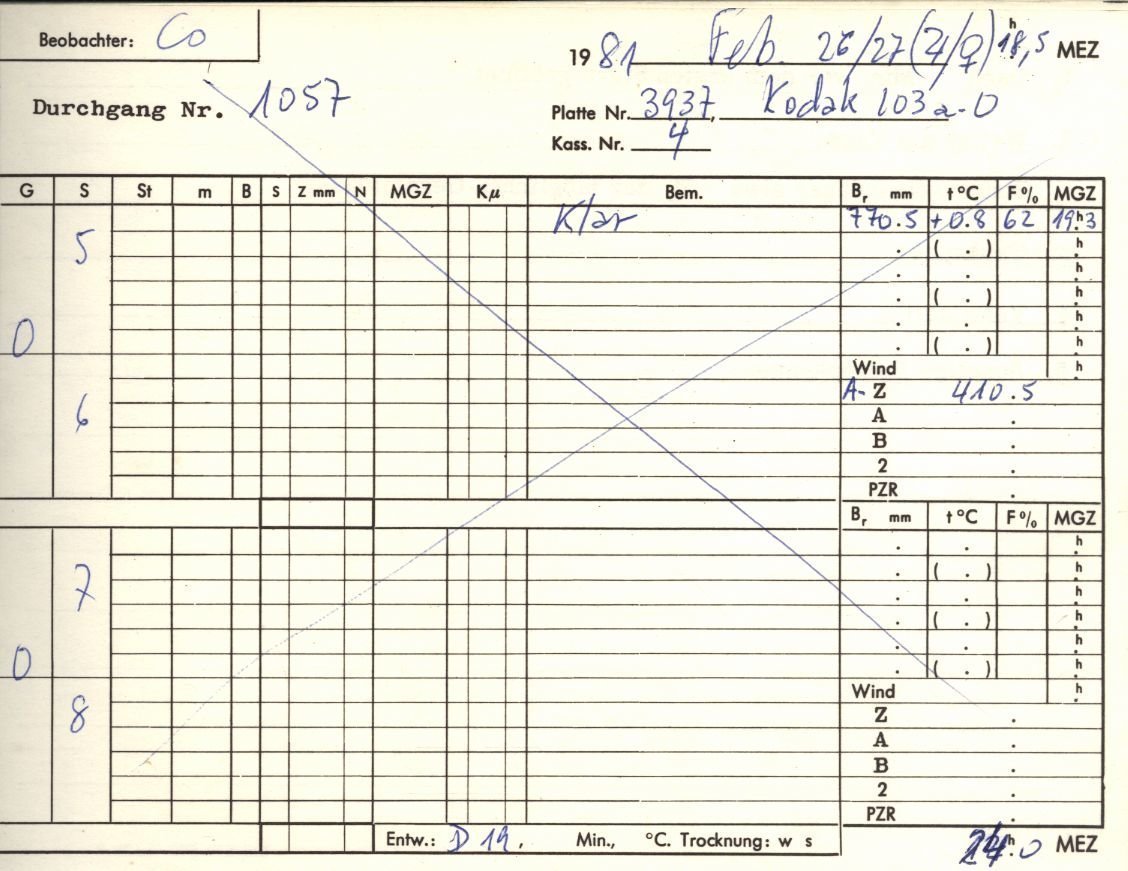 Beobachter: Co
1981 Feb. 26/27 (♃/♀) 18,5 h MEZ
Durchgang Nr. 1057
Platte Nr. 3937, Kodak 103a-O
Kass. Nr. 4
G S St m B S Z mm N MGZ Kμ Bem. Br mm t °C F % MGZ
Klar 770.5 +0.8 62 19h.3
5 . ( . ) h
. . h
. ( . ) h
. . h
0 . ( . ) h
Wind h
A- Z 410.5
6 A .
B .
2 .
PZR .
Br mm t °C F % MGZ
. . h
. ( . ) h
7 . . h
. ( . ) h
. . h
0 . ( . ) h
Wind h
8 Z .
A .
B .
2 .
PZR .
Entw.: D 19, Min., °C. Trocknung: w s
h.0 MEZ